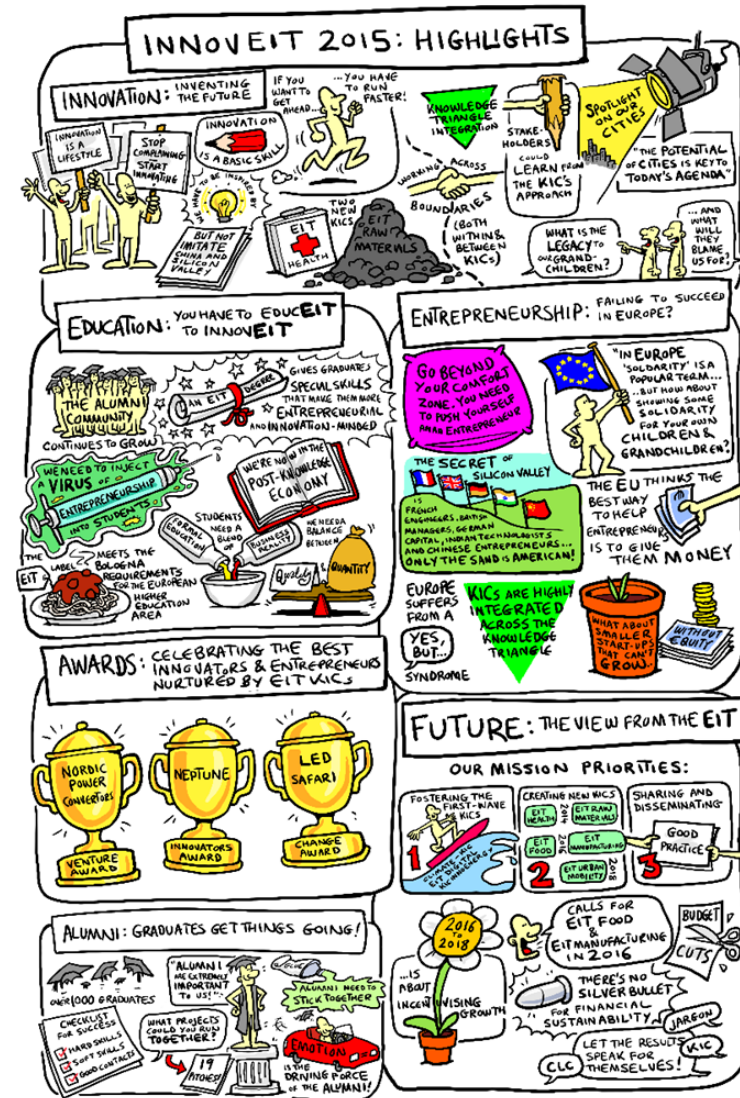 INNOVEIT 2015: HIGHLIGHTS
INNOVATION: INVENTING
THE FUTURE
INNOVATION
IS A
LIFESTYLE
STOP
COMPLAINING
START
INNOVATING
INNOVATION
IS A BASIC SKILL
WE HAVE TO BE INSPIRED BY
BUT NOT
IMITATE
CHINA AND
SILICON
VALLEY
IF YOU
WANT TO
GET
AHEAD...
...YOU HAVE
TO RUN
FASTER!
TWO
NEW
KICS
EIT
HEALTH
EIT
RAW
MATERIALS
KNOWLEDGE
TRIANGLE
INTEGRATION
WORKING ACROSS
BOUNDARIES
(BOTH
WITHIN &
BETWEEN
KICS)
STAKE-
HOLDERS
COULD
LEARN FROM
THE KIC'S
APPROACH
SPOTLIGHT
ON OUR
CITIES
"THE POTENTIAL
OF CITIES IS KEY TO
TODAY'S AGENDA"
WHAT IS THE
LEGACY TO
OUR GRAND-
CHILDREN?
...AND
WHAT
WILL
THEY
BLAME
US FOR?
EDUCATION: YOU HAVE TO EDUCEIT
TO INNOVEIT
THE ALUMNI
COMMUNITY
CONTINUES TO GROW
AN EIT DEGREE
GIVES GRADUATES
SPECIAL SKILLS
THAT MAKE THEM MORE
ENTREPRENEURIAL
AND INNOVATION-MINDED
WE NEED TO INJECT
A VIRUS OF
ENTREPRENEURSHIP
INTO STUDENTS
WE'RE NOW IN THE
POST-KNOWLEDGE
ECONOMY
STUDENTS
NEED A
BLEND
OF
FORMAL
EDUCATION
BUSINESS
REALITY
WE NEED A
BALANCE
BETWEEN
Quality
&
QUANTITY
THE
EIT
LABEL
MEETS THE
BOLOGNA
REQUIREMENTS
FOR THE EUROPEAN
HIGHER
EDUCATION
AREA
ENTREPRENEURSHIP: FAILING TO SUCCEED
IN EUROPE?
GO BEYOND
YOUR COMFORT
ZONE. YOU NEED
TO PUSH YOURSELF
AS AN ENTREPRENEUR
"IN EUROPE
'SOLDARITY' IS A
POPULAR TERM...
...BUT HOW ABOUT
SHOWING SOME
SOLIDARITY
FOR YOUR OWN
CHILDREN &
GRANDCHILDREN?
THE SECRET OF
SILICON VALLEY
IS
FRENCH
ENGINEERS, BRITISH
MANAGERS, GERMAN
CAPITAL, INDIAN TECHNOLOGISTS
AND CHINESE ENTREPRENEURS...
ONLY THE SAND IS AMERICAN!
THE EU THINKS THE
BEST WAY
TO HELP
ENTREPRENEURS
IS TO GIVE
THEM MONEY
EUROPE
SUFFERS
FROM A
YES,
BUT...
SYNDROME
KICS ARE HIGHLY
INTEGRATED
ACROSS THE
KNOWLEDGE
TRIANGLE
WHAT ABOUT
SMALLER
START-UPS
THAT CAN'T
GROW..
WITHOUT
EQUITY
AWARDS: CELEBRATING THE BEST
INNOVATORS & ENTREPRENEURS
NURTURED BY EIT KICS
NORDIC
POWER
CONVERTORS
VENTURE
AWARD
NEPTUNE
INNOVATORS
AWARD
LED
SAFARI
CHANGE
AWARD
FUTURE: THE VIEW FROM THE EIT
OUR MISSION PRIORITIES:
FOSTERING THE
FIRST-WAVE
OF KICS
1
CLIMATE-KIC
EIT DIGITAL
KIC INNOENERGY
CREATING NEW KICS
EIT
HEALTH
2014
EIT RAW
MATERIALS
EIT
FOOD
2016
EIT
MANUFACTURING
2
EIT URBAN
MOBILITY
2018
SHARING AND
DISSEMINATING
GOOD
PRACTICE
3
2016
TO
2018
...IS
ABOUT
INCENTIVISING
GROWTH
CALLS FOR
EIT FOOD
&
EIT MANUFACTURING
IN 2016
BUDGET
CUTS
THERE'S NO
SILVER BULLET
FOR FINANCIAL
SUSTAINABILITY
JARGON
KIC
CLC
LET THE RESULTS
SPEAK FOR
THEMSELVES!
ALUMNI: GRADUATES GET THINGS GOING!
OVER 1000 GRADUATES
CHECKLIST
FOR SUCCESS
HARD SKILLS
SOFT SKILLS
GOOD CONTACTS
"ALUMNI
ARE EXTREMELY
IMPORTANT
TO US!"
WHAT PROJECTS
COULD YOU RUN
TOGETHER?
19
PITCHES
GLUE
ALUMNI NEED TO
STICK TOGETHER
EMOTION
IS THE
DRIVING FORCE
OF THE ALUMNI!